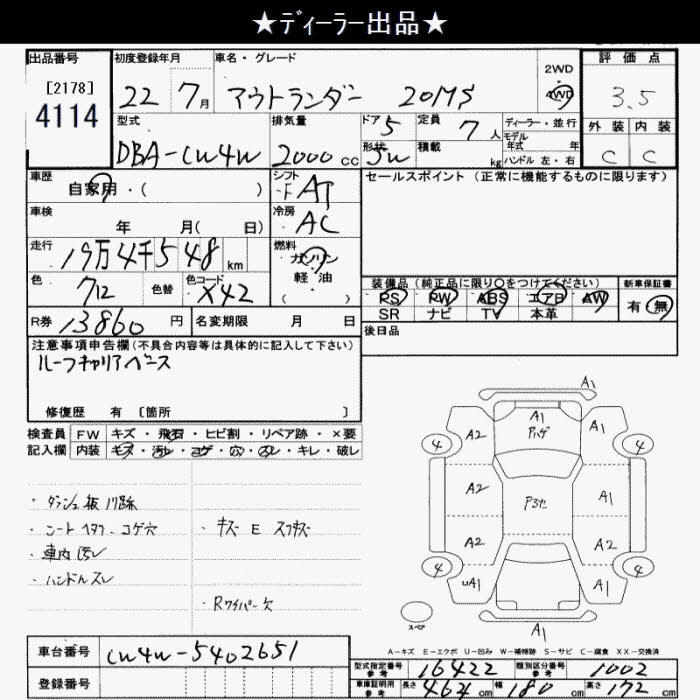 ★ディーラー出品★
出品番号
[2178]
4114
初度登録年月
22 7月
車名・グレード
アウトランダー 20MS
2WD
4WD
評価点
3.5
外装 内装
C C
型式
DBA-CW4W
排気量
2000cc
ドア 5
形状 5W
定員 7人
積載 kg
ディーラー・並行
モデル
年式 年
ハンドル 左・右
車歴
自家用・( )
シフト
F AT
セールスポイント (正常に機能するものに限ります)
車検
年 月( 日)
冷房
AC
走行
19万4千548km
燃料
ガソリン
軽油
( )
色
色替
色コード
X42
装備品 (純正品に限り○をつけてください)
PS PW ABS エアB AW
SR ナビ TV 本革
新車保証書
有・無
R券 13860円
名変期限 月 日
後日品
注意事項申告欄(不具合内容等は具体的に記入して下さい)
ルーフキャリアベース
修復歴 有 〔箇所 〕
検査員
記入欄
FW キズ・飛石・ヒビ割・リペア跡・×要
内装 キズ・汚レ・コゲ・穴・スレ・キレ・破レ
・ダッシュ板 パ跡
・シート ヘタリ、コゲ穴
・車内汚レ
・ハンドルスレ
・キズ E スリキズ
・Rワイパー欠
A1
A1
Pハゲ
A2
A1
4
4
A2
A1
A2
A2
4
4
UA1
A1
A1
スペア
A-キズ E-エクボ U-凹み W-補修跡 S-サビ C-腐食 XX-交換済
車台番号
CW4W-5402651
登録番号
型式指定番号
参考
16422
類別区分番号
参考
1002
車庫証明用
参考
長さ 467cm 幅 180cm 高さ 172cm